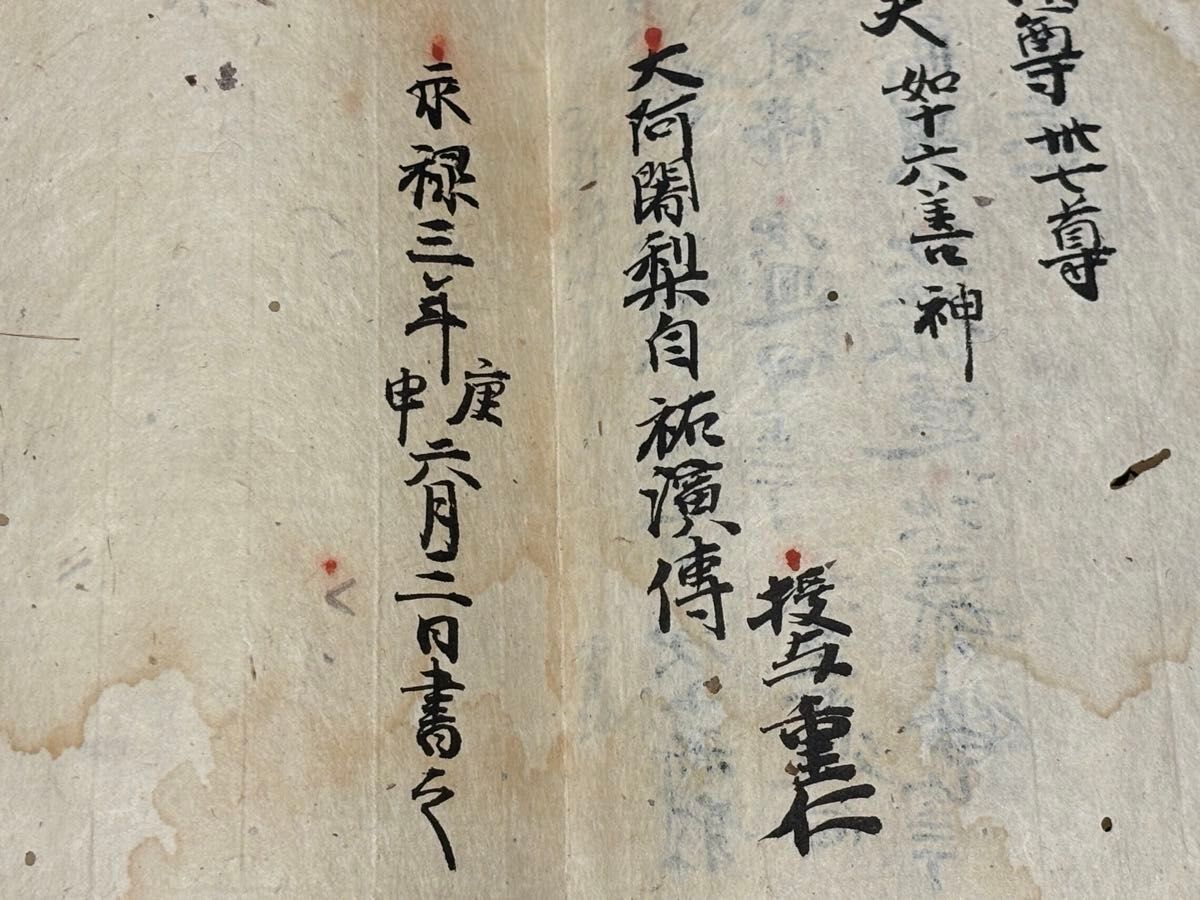 尊卅七尊
天 如十六善神
授与重仁
大阿闍梨自祐演傳
永禄三年庚申六月二日書之